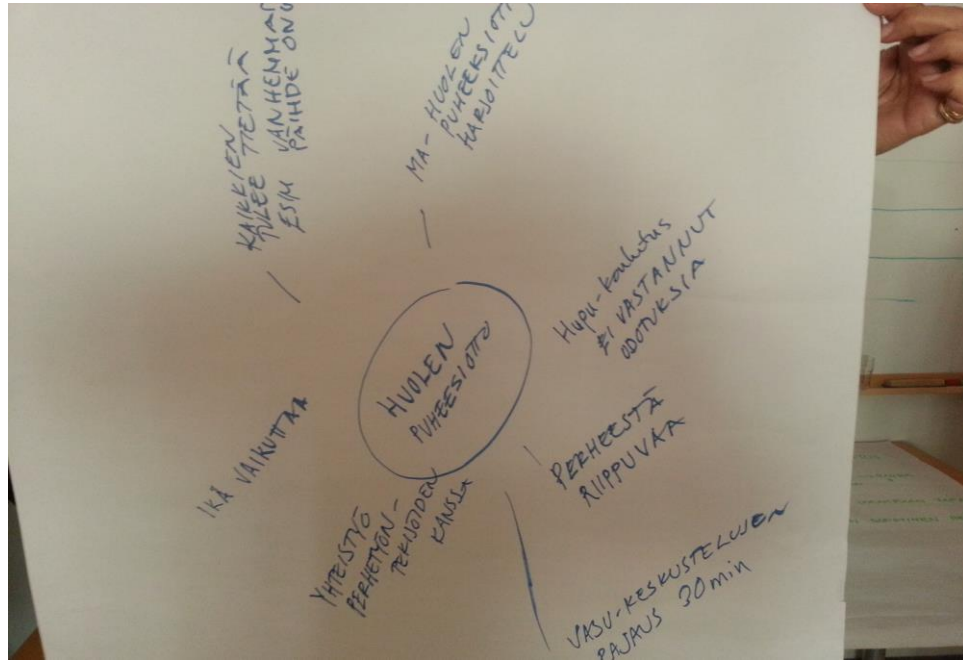 HUOLEN
PUHEESIOTTO
KAIKKIEN
TULEE TIETÄÄ
ESIM VANHEMMAN
PÄIHDE ONG
MA- HUOLEN
PUHEEKSIOTTO
HARJOITTELU
Hupu-koulutus
EI VASTANNUT
ODOTUKSIA
PERHEESTÄ
RIIPPUVAA
VASU-KESKUSTELUJEN
PAJAUS 30min
YHTEISTYÖ
PERHETYÖN-
TEKIJÖIDEN
KANSSA
IKÄ VAIKUTTAA